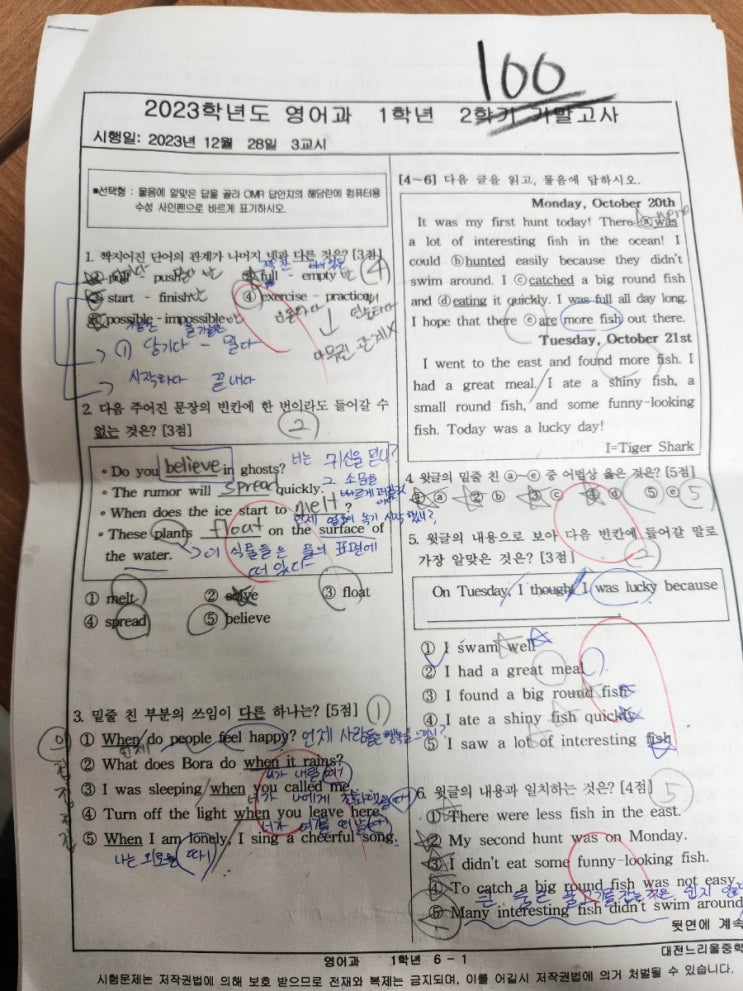 100
2023학년도 영어과 1학년 2학기 기말고사
시행일: 2023년 12월 28일 3교시
■선택형 : 물음에 알맞은 답을 골라 OMR 답안지의 해당란에 컴퓨터용
수성 사인펜으로 바르게 표기하시오.
1. 짝지어진 단어의 관계가 나머지 넷과 다른 것은? [3점]
① pull - push ② full - empty ④
③ start - finish ④ exercise - practice
⑤ possible - impossible
→ ① 당기다 - 밀다
→ 시작하다 끝내다
2. 다음 주어진 문장의 빈칸에 한 번이라도 들어갈 수
없는 것은? [3점] ②
• Do you believe in ghosts? 너는 귀신을 믿니?
• The rumor will spread quickly.
• When does the ice start to melt ?
• These plants float on the surface of
the water. → 이 식물들은 물의 표면에
떠 있다
① melt ② solve ③ float
④ spread ⑤ believe
3. 밑줄 친 부분의 쓰임이 다른 하나는? [5점] ①
① When do people feel happy? 언제
② What does Bora do when it rains?
③ I was sleeping when you called me.
④ Turn off the light when you leave here.
⑤ When I am lonely, I sing a cheerful song.
나는 외로울 때
[4~6] 다음 글을 읽고, 물음에 답하시오.
Monday, October 20th
It was my first hunt today! There ⓐwas
a lot of interesting fish in the ocean! I
could ⓑhunted easily because they didn't
swim around. I ⓒcatched a big round fish
and ⓓeating it quickly. I was full all day long.
I hope that there ⓔare more fish out there.
Tuesday, October 21st
I went to the east and found more fish. I
had a great meal. I ate a shiny fish, a
small round fish, and some funny-looking
fish. Today was a lucky day!
I=Tiger Shark
4. 윗글의 밑줄 친 ⓐ~ⓔ 중 어법상 옳은 것은? [5점]
① ⓐ ② ⓑ ③ ⓒ ④ ⓓ ⑤ ⓔ ⑤
5. 윗글의 내용으로 보아 다음 빈칸에 들어갈 말로
가장 알맞은 것은? [3점] ②
On Tuesday, I thought I was lucky because
① I swam well
② I had a great meal
③ I found a big round fish
④ I ate a shiny fish quickly
⑤ I saw a lot of interesting fish
6. 윗글의 내용과 일치하는 것은? [4점] ⑤
① There were less fish in the east.
② My second hunt was on Monday.
③ I didn't eat some funny-looking fish.
④ To catch a big round fish was not easy.
⑤ Many interesting fish didn't swim around
뒷면에 계속
영어과 1학년 6 - 1
대전느리울중학
시험문제는 저작권법에 의해 보호 받으므로 전재와 복제는 금지되며, 이를 어길시 저작권법에 의거 처벌될 수 있습니다.